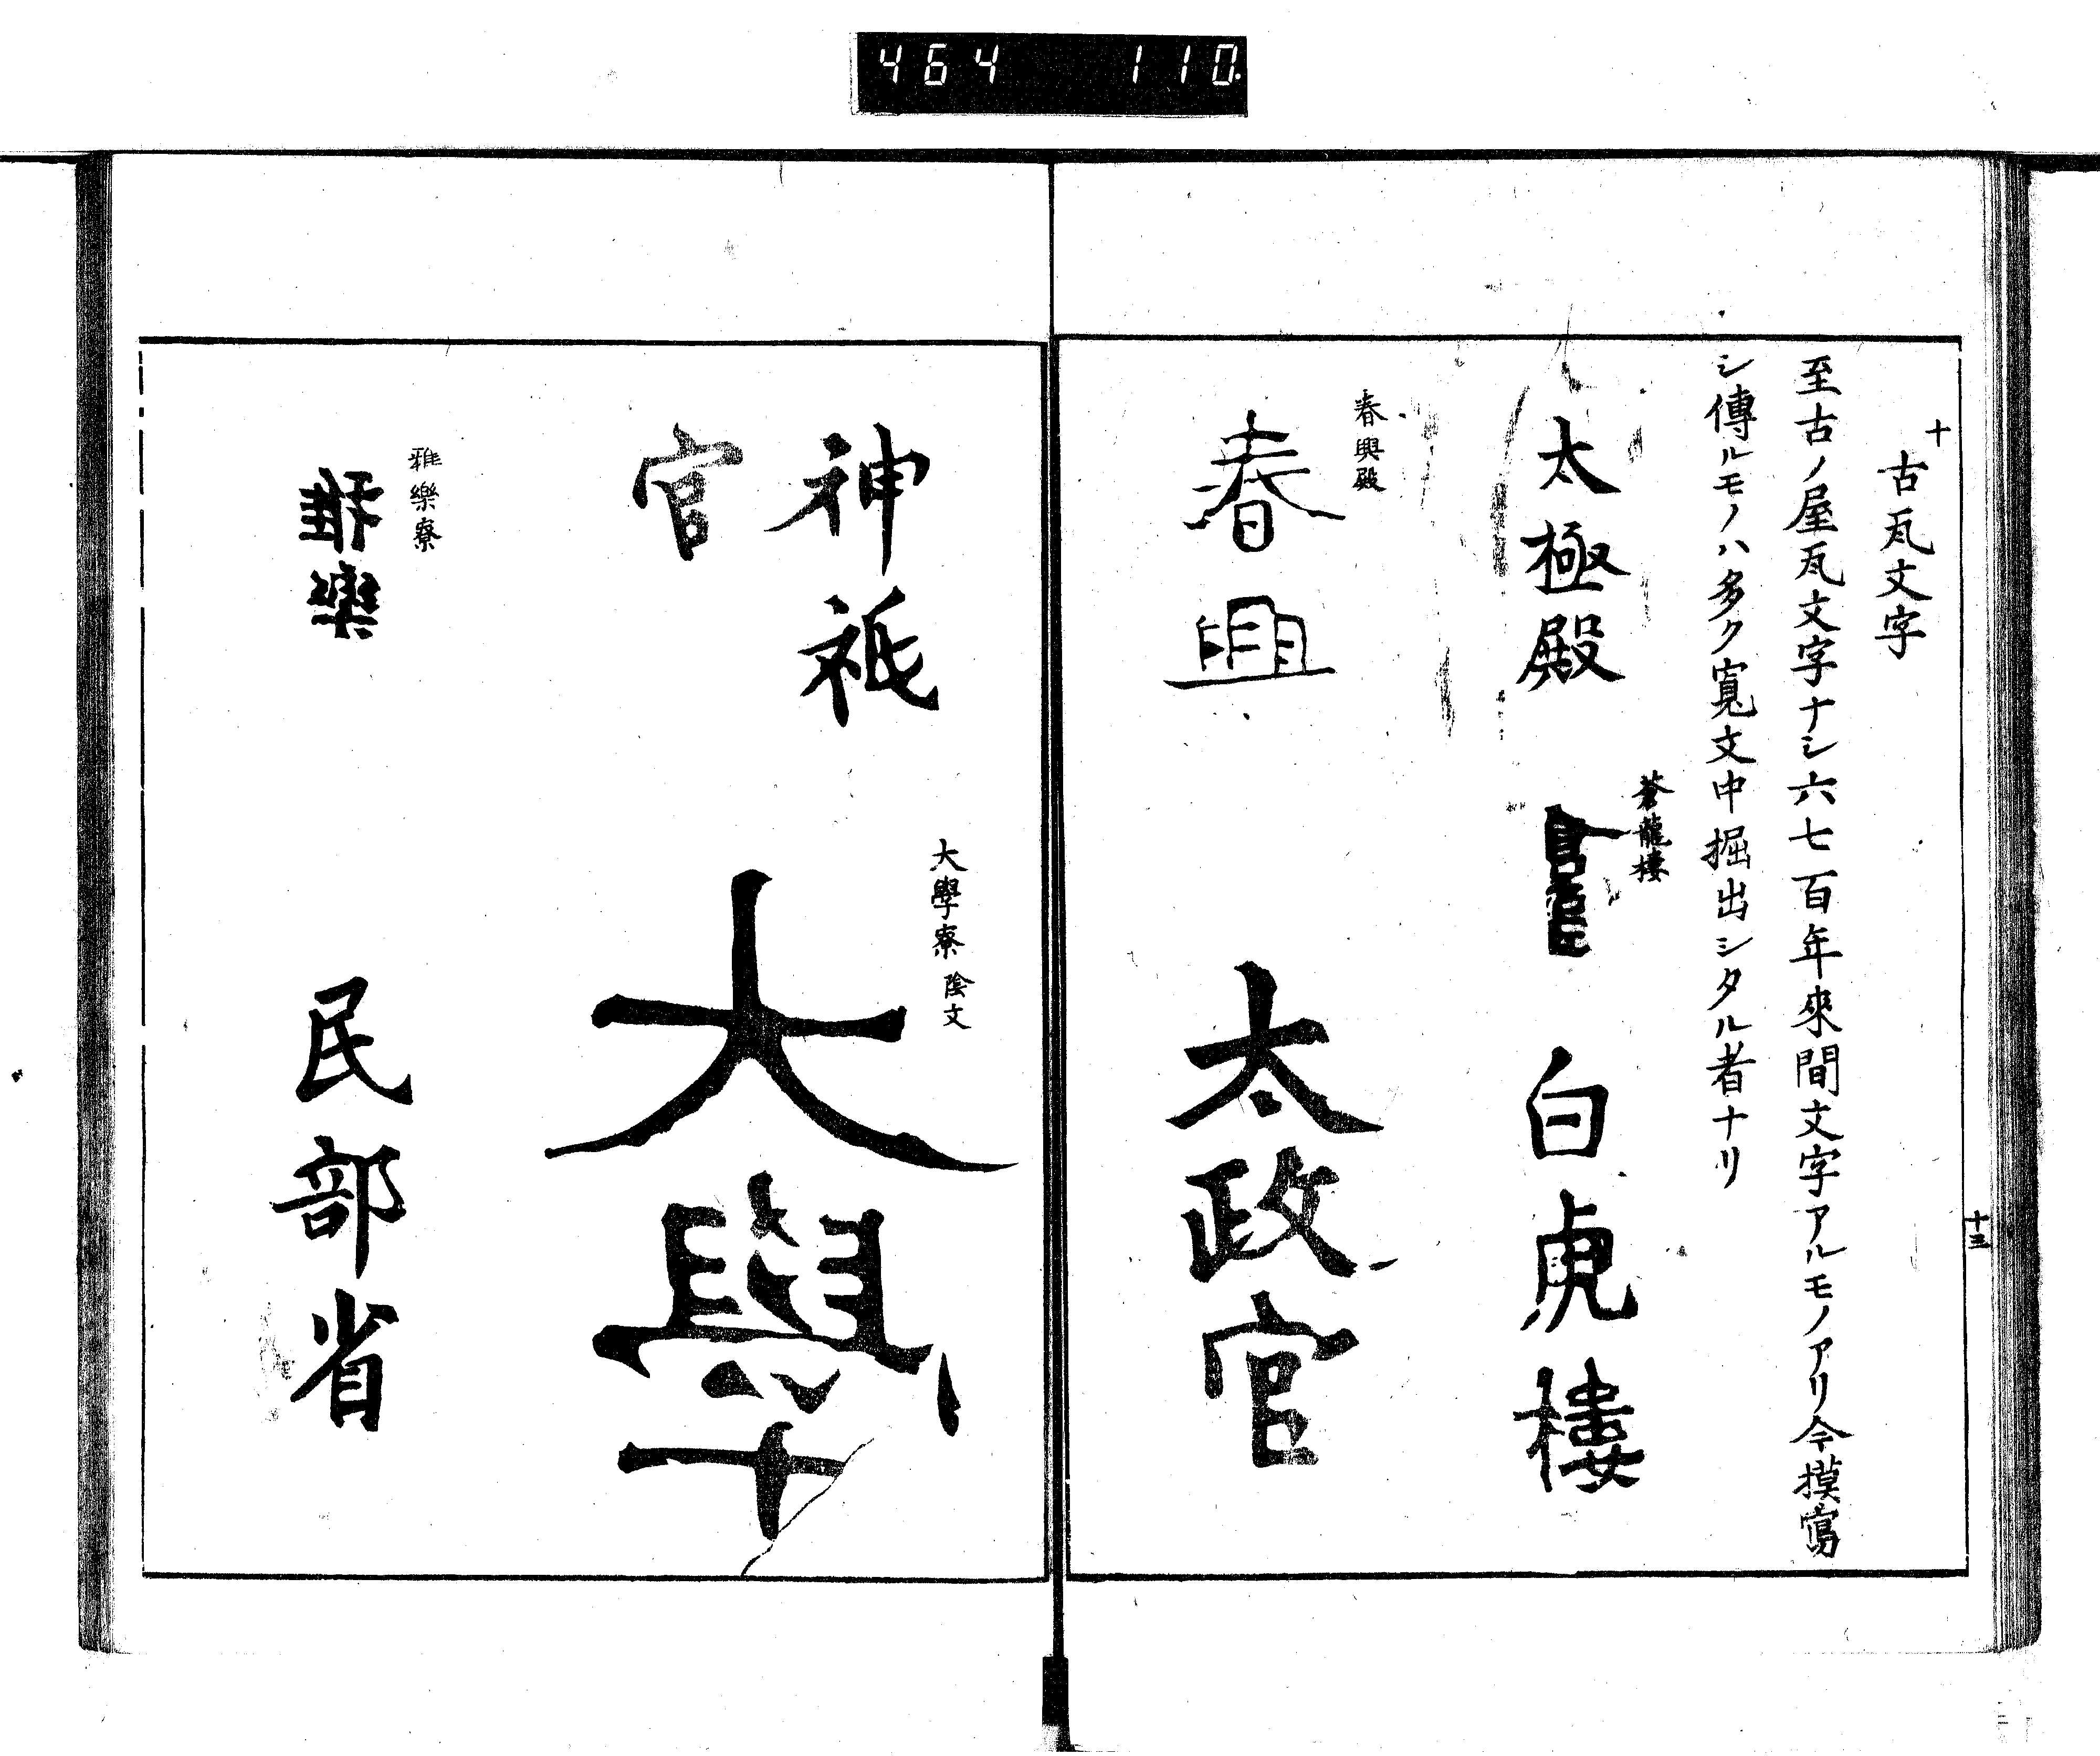 464 110.
十
古瓦文字
至古ノ屋瓦文字ナシ六七百年來間文字アルモノアリ今摸寫
シ傳ルモノハ多ク寛文中掘出シタル者ナリ
十三
太極殿
蒼龍樓
白虎樓
春興殿
春興
太政官
神祇
官
大學寮 陰文
大學
雅樂寮
雅樂
民部省